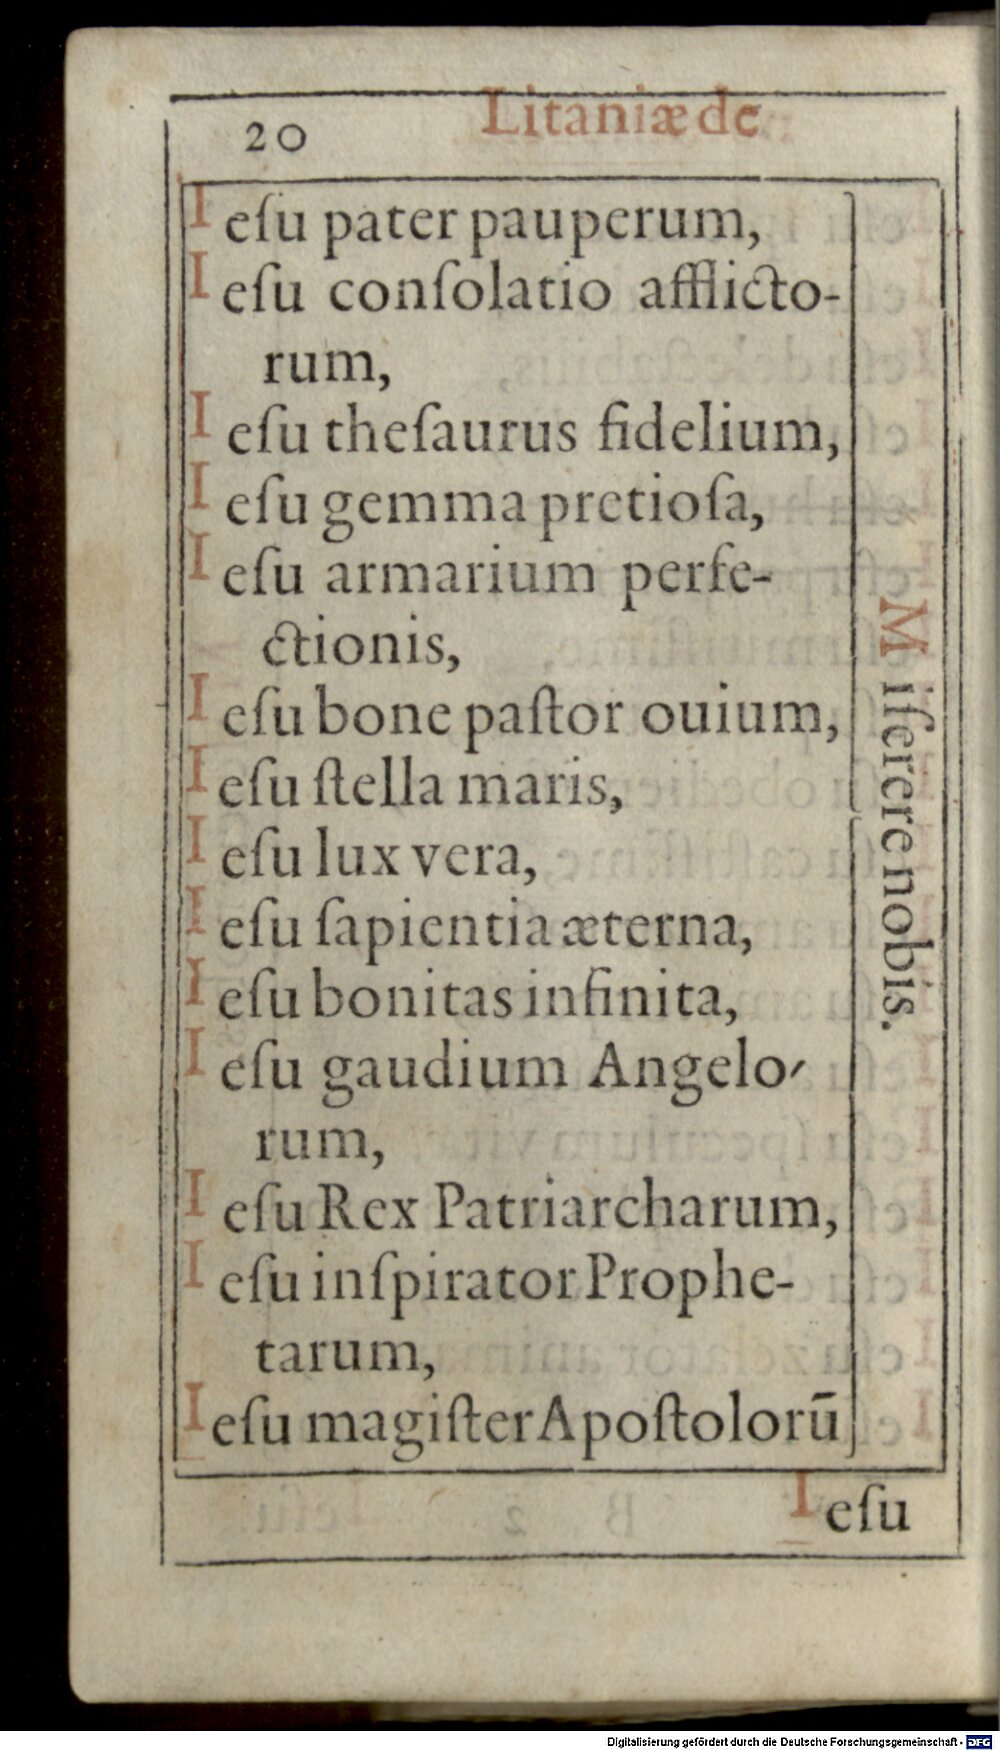 20 Litaniæ de
Ieſu pater pauperum,
Ieſu conſolatio afflicto-
rum,
Ieſu theſaurus fidelium,
Ieſu gemma pretioſa,
Ieſu armarium perfe-
ctionis,
Ieſu bone paſtor ouium,
Ieſu ſtella maris,
Ieſu lux vera,
Ieſu ſapientia æterna,
Ieſu bonitas infinita,
Ieſu gaudium Angelo-
rum,
Ieſu Rex Patriarcharum,
Ieſu inſpirator Prophe-
tarum,
Ieſu magiſter Apoſtolorū
Miſerere nobis.
Ieſu
Digitalisierung gefördert durch die Deutsche Forschungsgemeinschaft - DFG